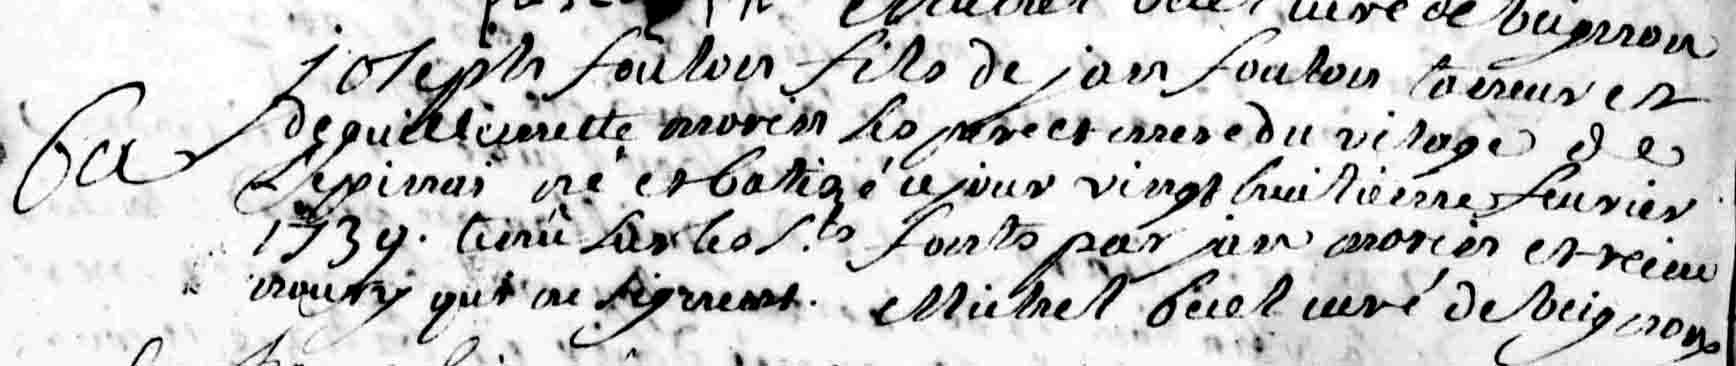 Michel buel curé de beignon
joseph foulon fils de jan foulon taneur et
de guillemette morin ses pere et mere du vilage de
Lepinai né et batizé ce jour vingt huitieme feurier
1739. tenu sur les S.ts fonts par jan morin et reine
moury qui ne signent. Michel buel curé de beignon
ba